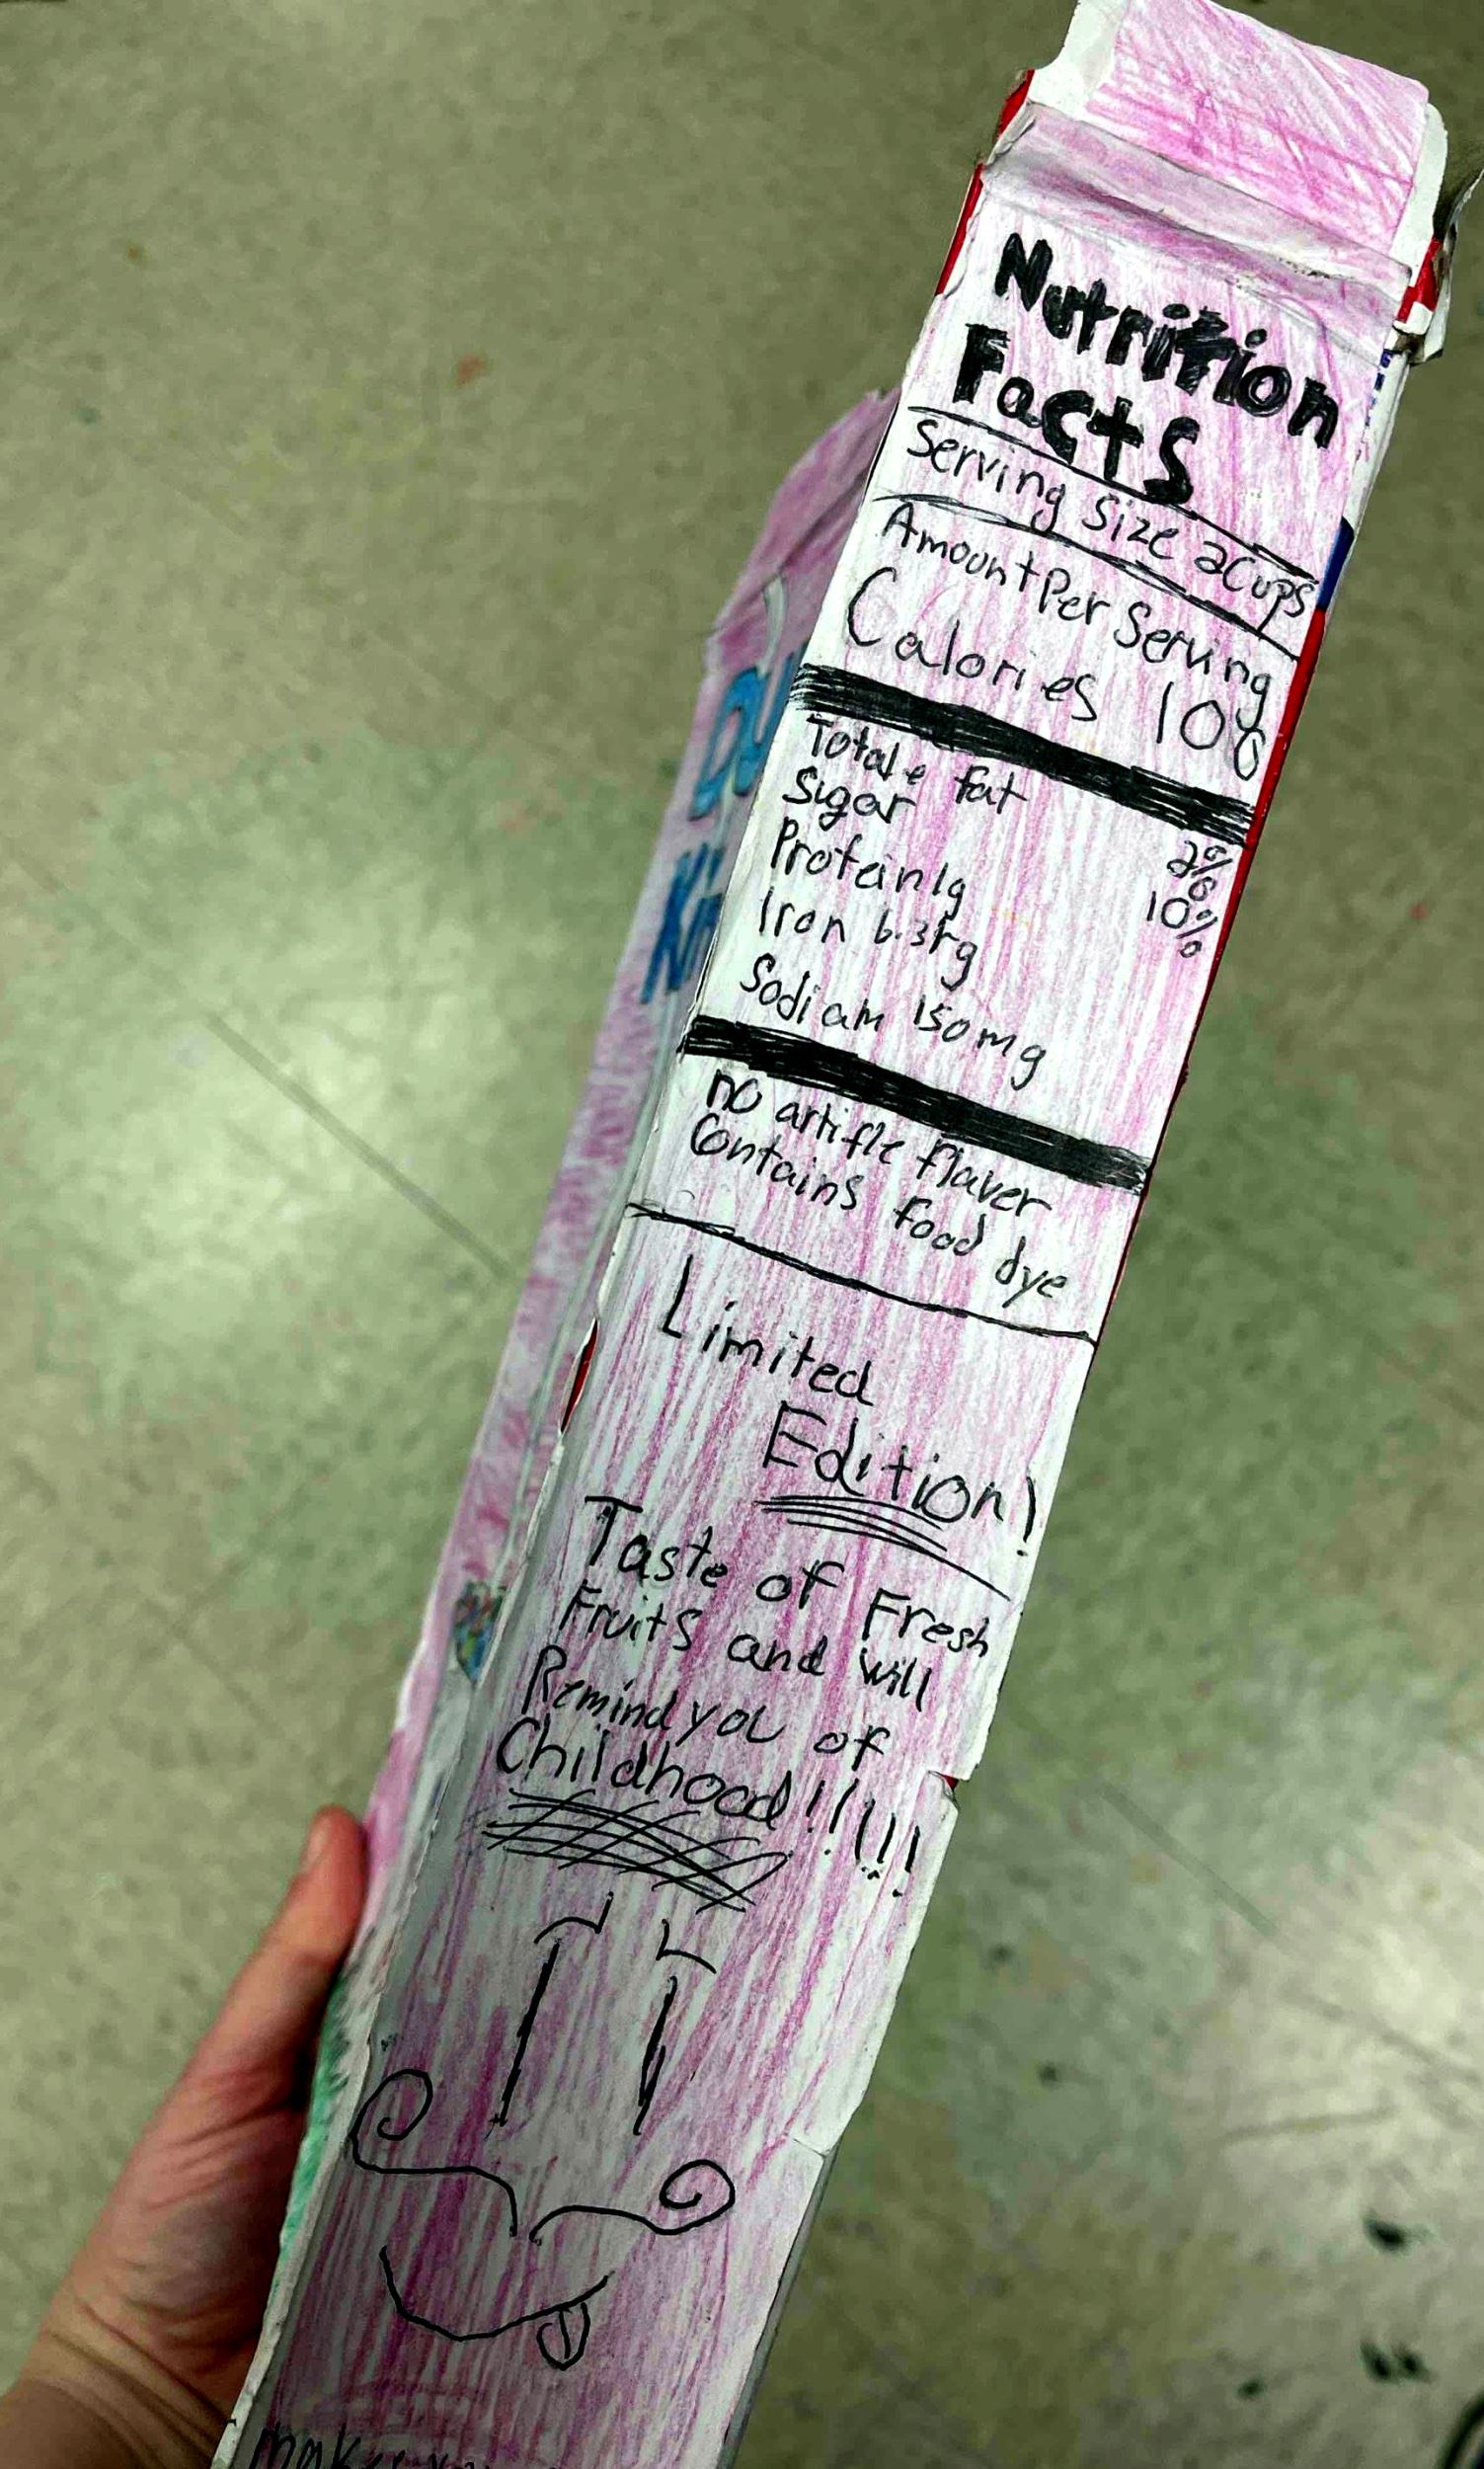 Nutrition
Facts
Serving Size 2 Cups
Amount Per Serving
Calories 100
Totale fat 2%
Sigar 10%
Protein 1g
Iron
Sodiam 150mg
no artific flaver
Contains food dye
Limited
Edition!
Taste of Fresh
Fruits and will
Remind you of
Childhood!!!!!